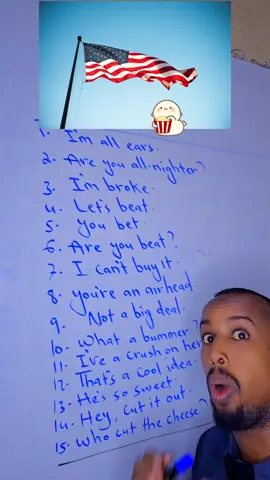 1. I'm all ears.
2. Are you all-nighter?
3. I'm broke.
4. Let's beat.
5. You bet.
6. Are you beat?
7. I can't buy it.
8. you're an airhead.
9. Not a big deal.
10. What a bummer
11. I've a crush on her
12. That's a cool idea.
13. He's so sweet.
14. Hey, cut it out.
15. Who cut the cheese?